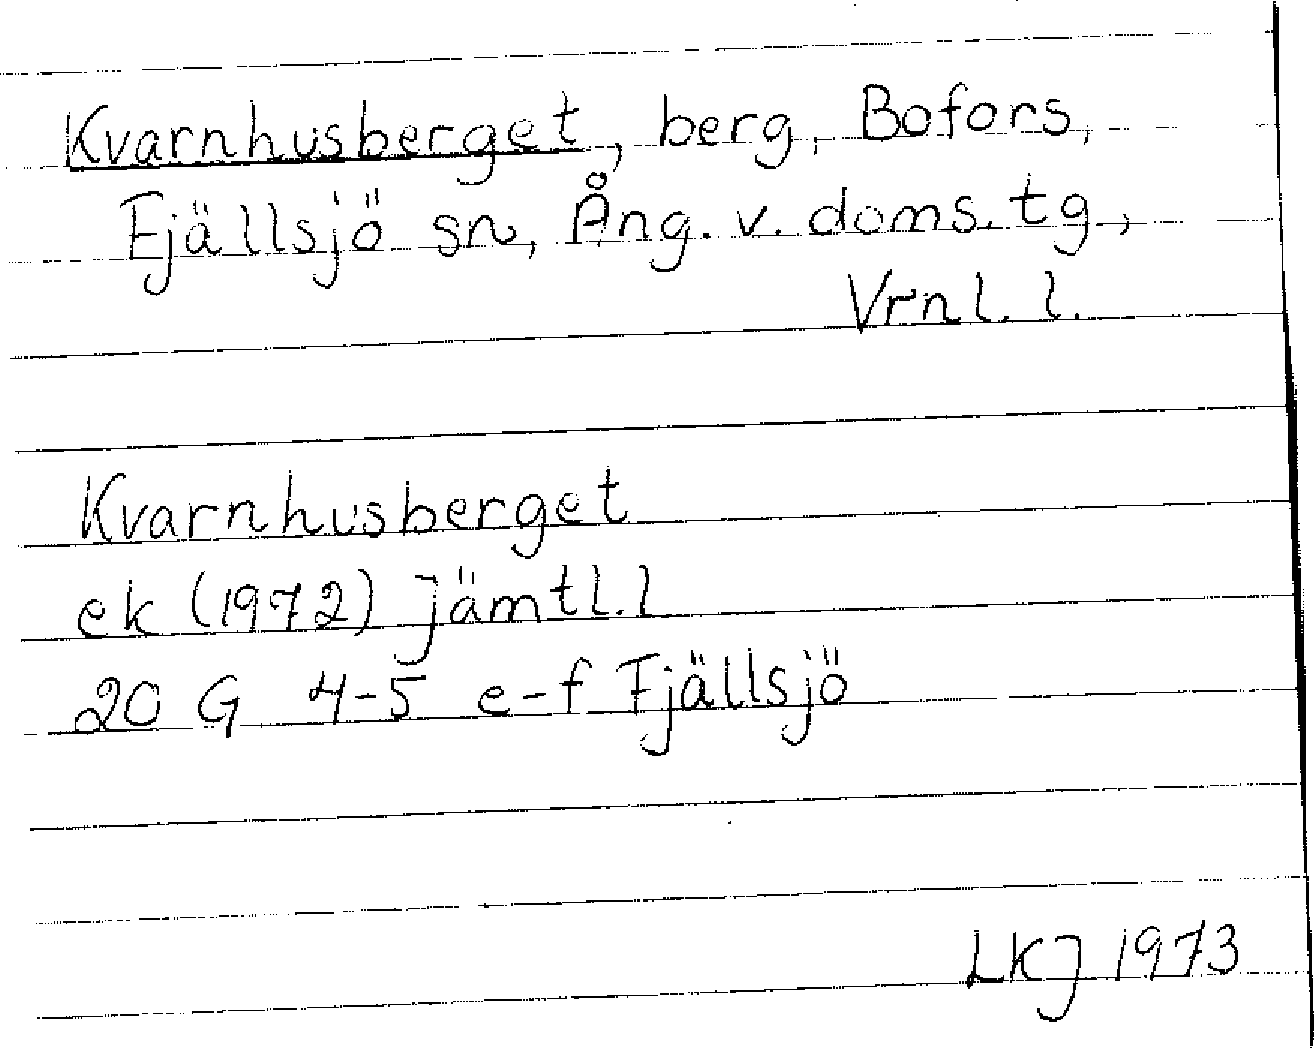 Kvarnhusberget, berg, Bofors,
Fjällsjö sn, Ång. v. doms. tg,
Vrnl. l.
Kvarnhusberget
ek (1972) Jämtl. l
20 G 4-5 e-f Fjällsjö
LKJ 1973